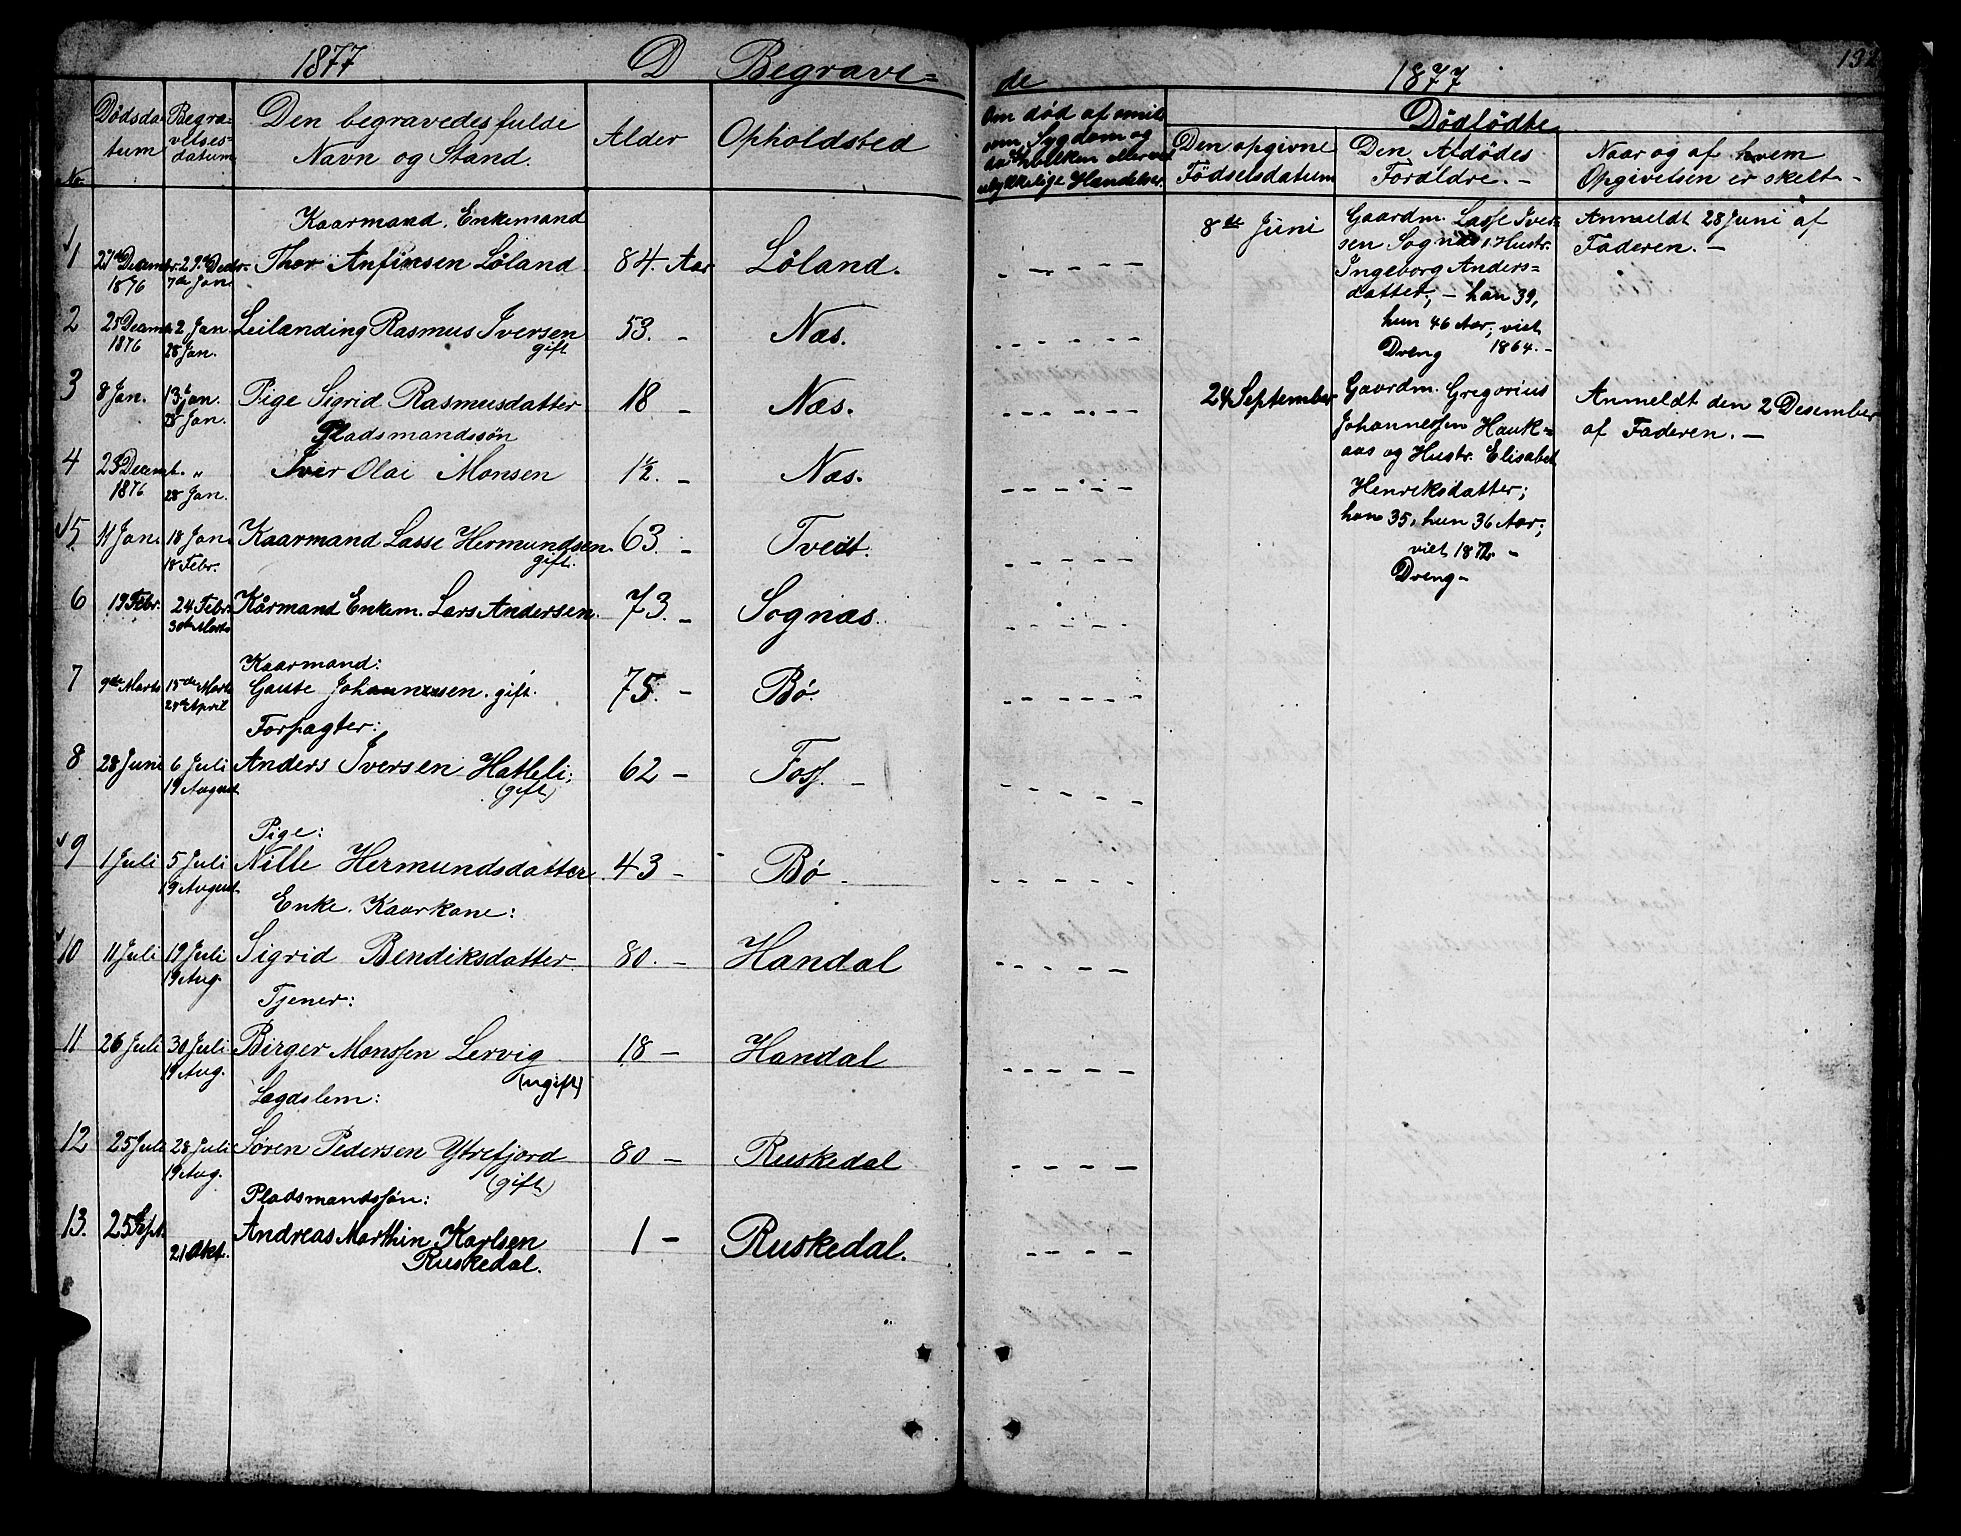 1877 D Begrave=
No
Dødsda
tum
Begra=
velses=
datum
Den begravedes fulde
Navn og Stand.
Alder
Opholdsted
Kaarmand, Enkemand
1 Decembr. 29de Decbr. Thor Anfinsen Løland 84. Aar Løland.
1876 7de Jan.
2 25 Decemb. 2 Jan. Leilænding Rasmus Iversen 53. - Næs.
1876 28 Jan. gift
3 8 Jan. 13 Jan. Pige Sigrid Rasmusdatter 18 - Næs.
28 Jan.
Pladsmandssøn
4 Decemb. " Iver Olai Monsen 1½. - Næs.
1876 28 Jan.
5 11 Jan. 18 Jan. Kaarmand Lasse Hermundsen 63. - Tvedt.
18 Febr. gift.
6 19 Febr. 24 Febr. Kårmand Enkem. Lars Andersen. 73. - Sognæs.
30te Marts
Kaarmand:
7 9de Marts 15de Marts Gaute Johannessen. gift. 75. - Bø.
April
Forpagter:
8 28 Juni 6 Juli Anders Iversen Hatleli; 62 - Foss. -
19 August (gift)
Pige:
9 1 Juli 5 Juli Nille Hermundsdatter 43 - Bø -
19 August
Enke. Kaarkone:
10 11 Juli 19 Juli Sigrid Bendiksdatter 80. - Handal
19 Aug.
Tjener:
11 26 Juli 30 Juli Birger Monssen Lervig 18 - Handal
19 Aug. (ugift)
Lægdslem:
12 25 Juli 28 Juli Søren Pedersen Ytrefjord 80 - Ruskedal
19 Aug. (gift)
Pladsmandssøn:
13. 25 Sept. Andreas Marthin Karlsen 1 - Ruskedal.
21 Okt. Ruskedal.
de 1877 192
Om død af smit
som Sygdom og
da hvilken eller ved
ulykkelige Hændelser.
Dødfødte
Den opgivne
Fødselsdatum
Den Afdødes
Forældre. -
Naar og af hvem
Opgivelsen er skeet -
8de Juni
Gaardm. Lasse Iver-
sen Sognæs i Hustr.
Ingeborg Anders=
datter, - han 39,
hun 46 Aar, viet
Dreng 1864. -
Anmeldt 28 Juni af
Faderen. -
24 September
Gaardm. Gregorius
Johannessen Hauk=
aas og Hustr. Elisabet
Henriksdatter;
han 35, hun 36 Aar;
viet 1872. -
Dreng -
Anmeldt den 2 Desember
af Faderen. -